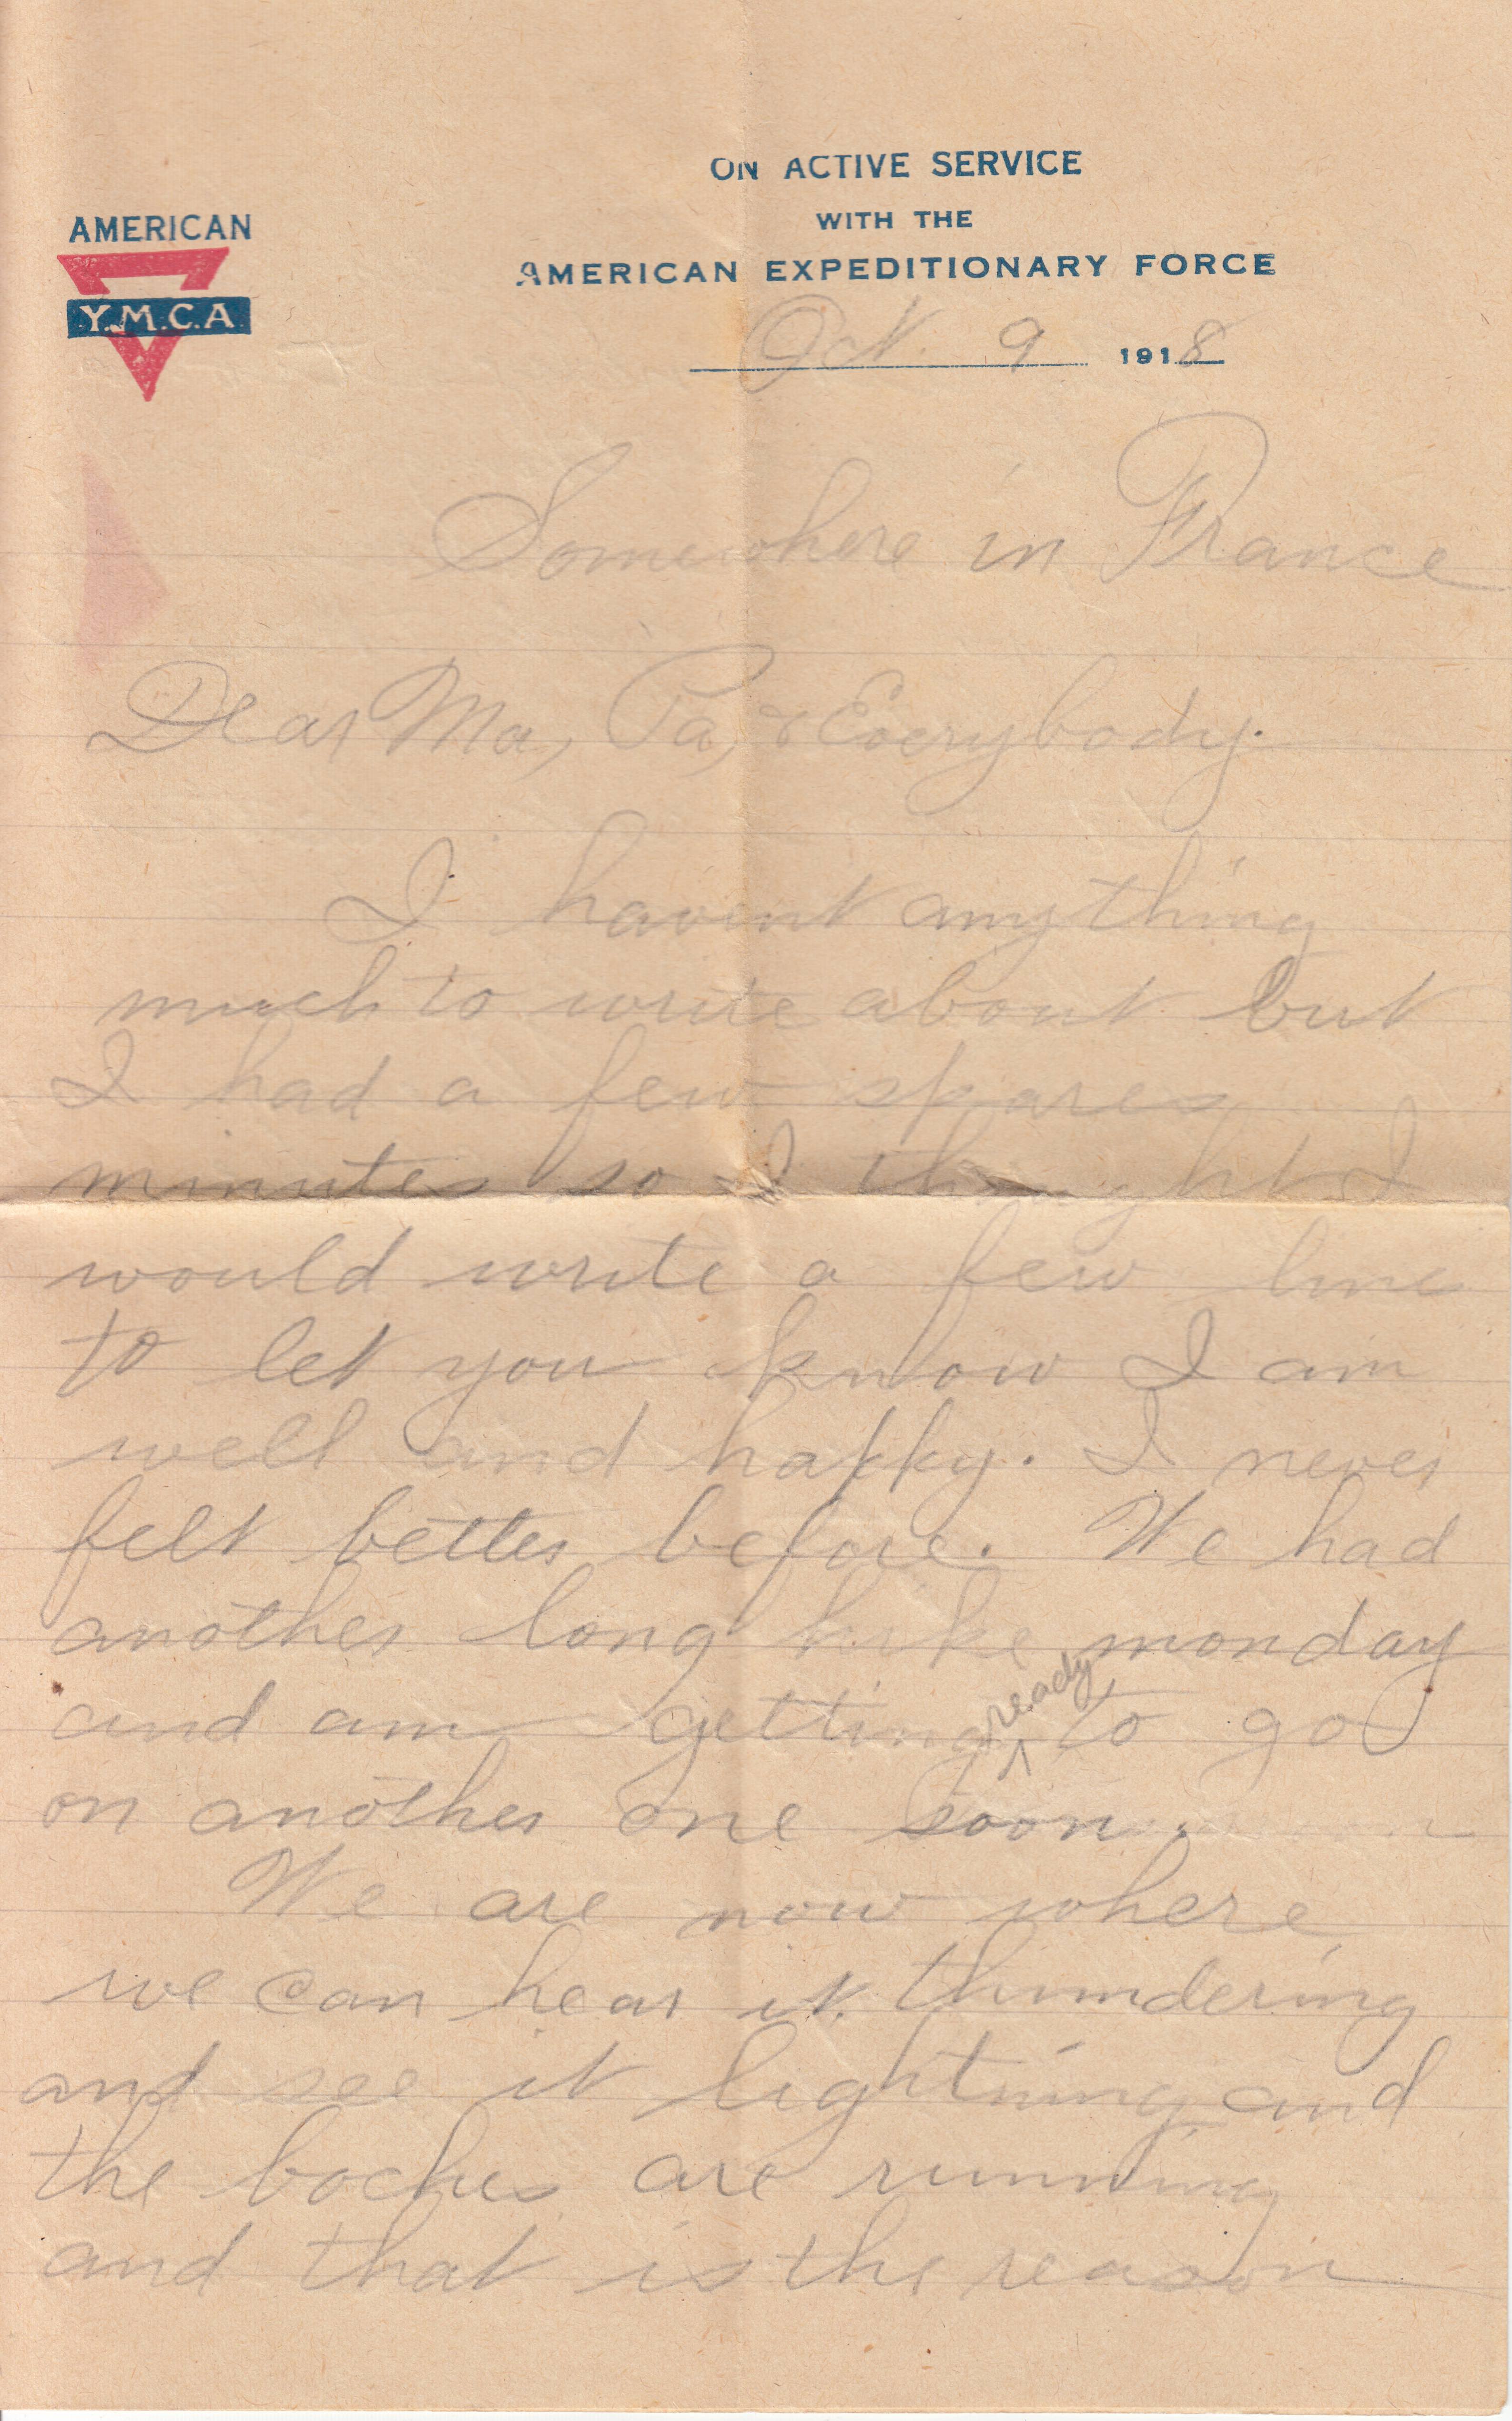 ON ACTIVE SERVICE
WITH THE
AMERICAN EXPEDITIONARY FORCE
AMERICAN
Y.M.C.A.
Oct. 9 1918
Somewhere in France
Dear Ma, Pa, & Everybody.
I havent anything
much to write about but
I had a few spare
minutes so I thought I
would write a few line
to let you know I am
well and happy. I never
felt better before. We had
another long hike monday
and am getting ready to go
on another one soon.
We are now where
we can hear it thundering
and see it lightning and
the boches are running
and that is the reason